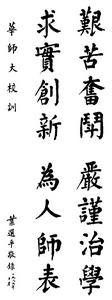 艱苦奮鬥 嚴謹治學
求實創新 為人師表
華師大校訓 葉選平敬錄